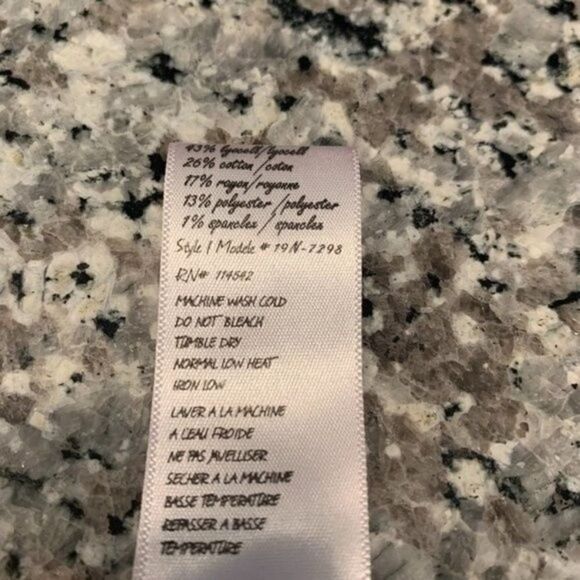 43% lyocell/lyocell
26% cotton/coton
17% rayon/rayonne
13% polyester/polyester
1% spandex/spandex
Style / Modele # 19N-7298
RN# 114642
MACHINE WASH COLD
DO NOT BLEACH
TUMBLE DRY
NORMAL LOW HEAT
IRON LOW
LAVER A LA MACHINE
A L'EAU FROIDE
NE PAS JAVELLISER
SECHER A LA MACHINE
BASSE TEMPERATURE
REPASSER A BASSE
TEMPERATURE